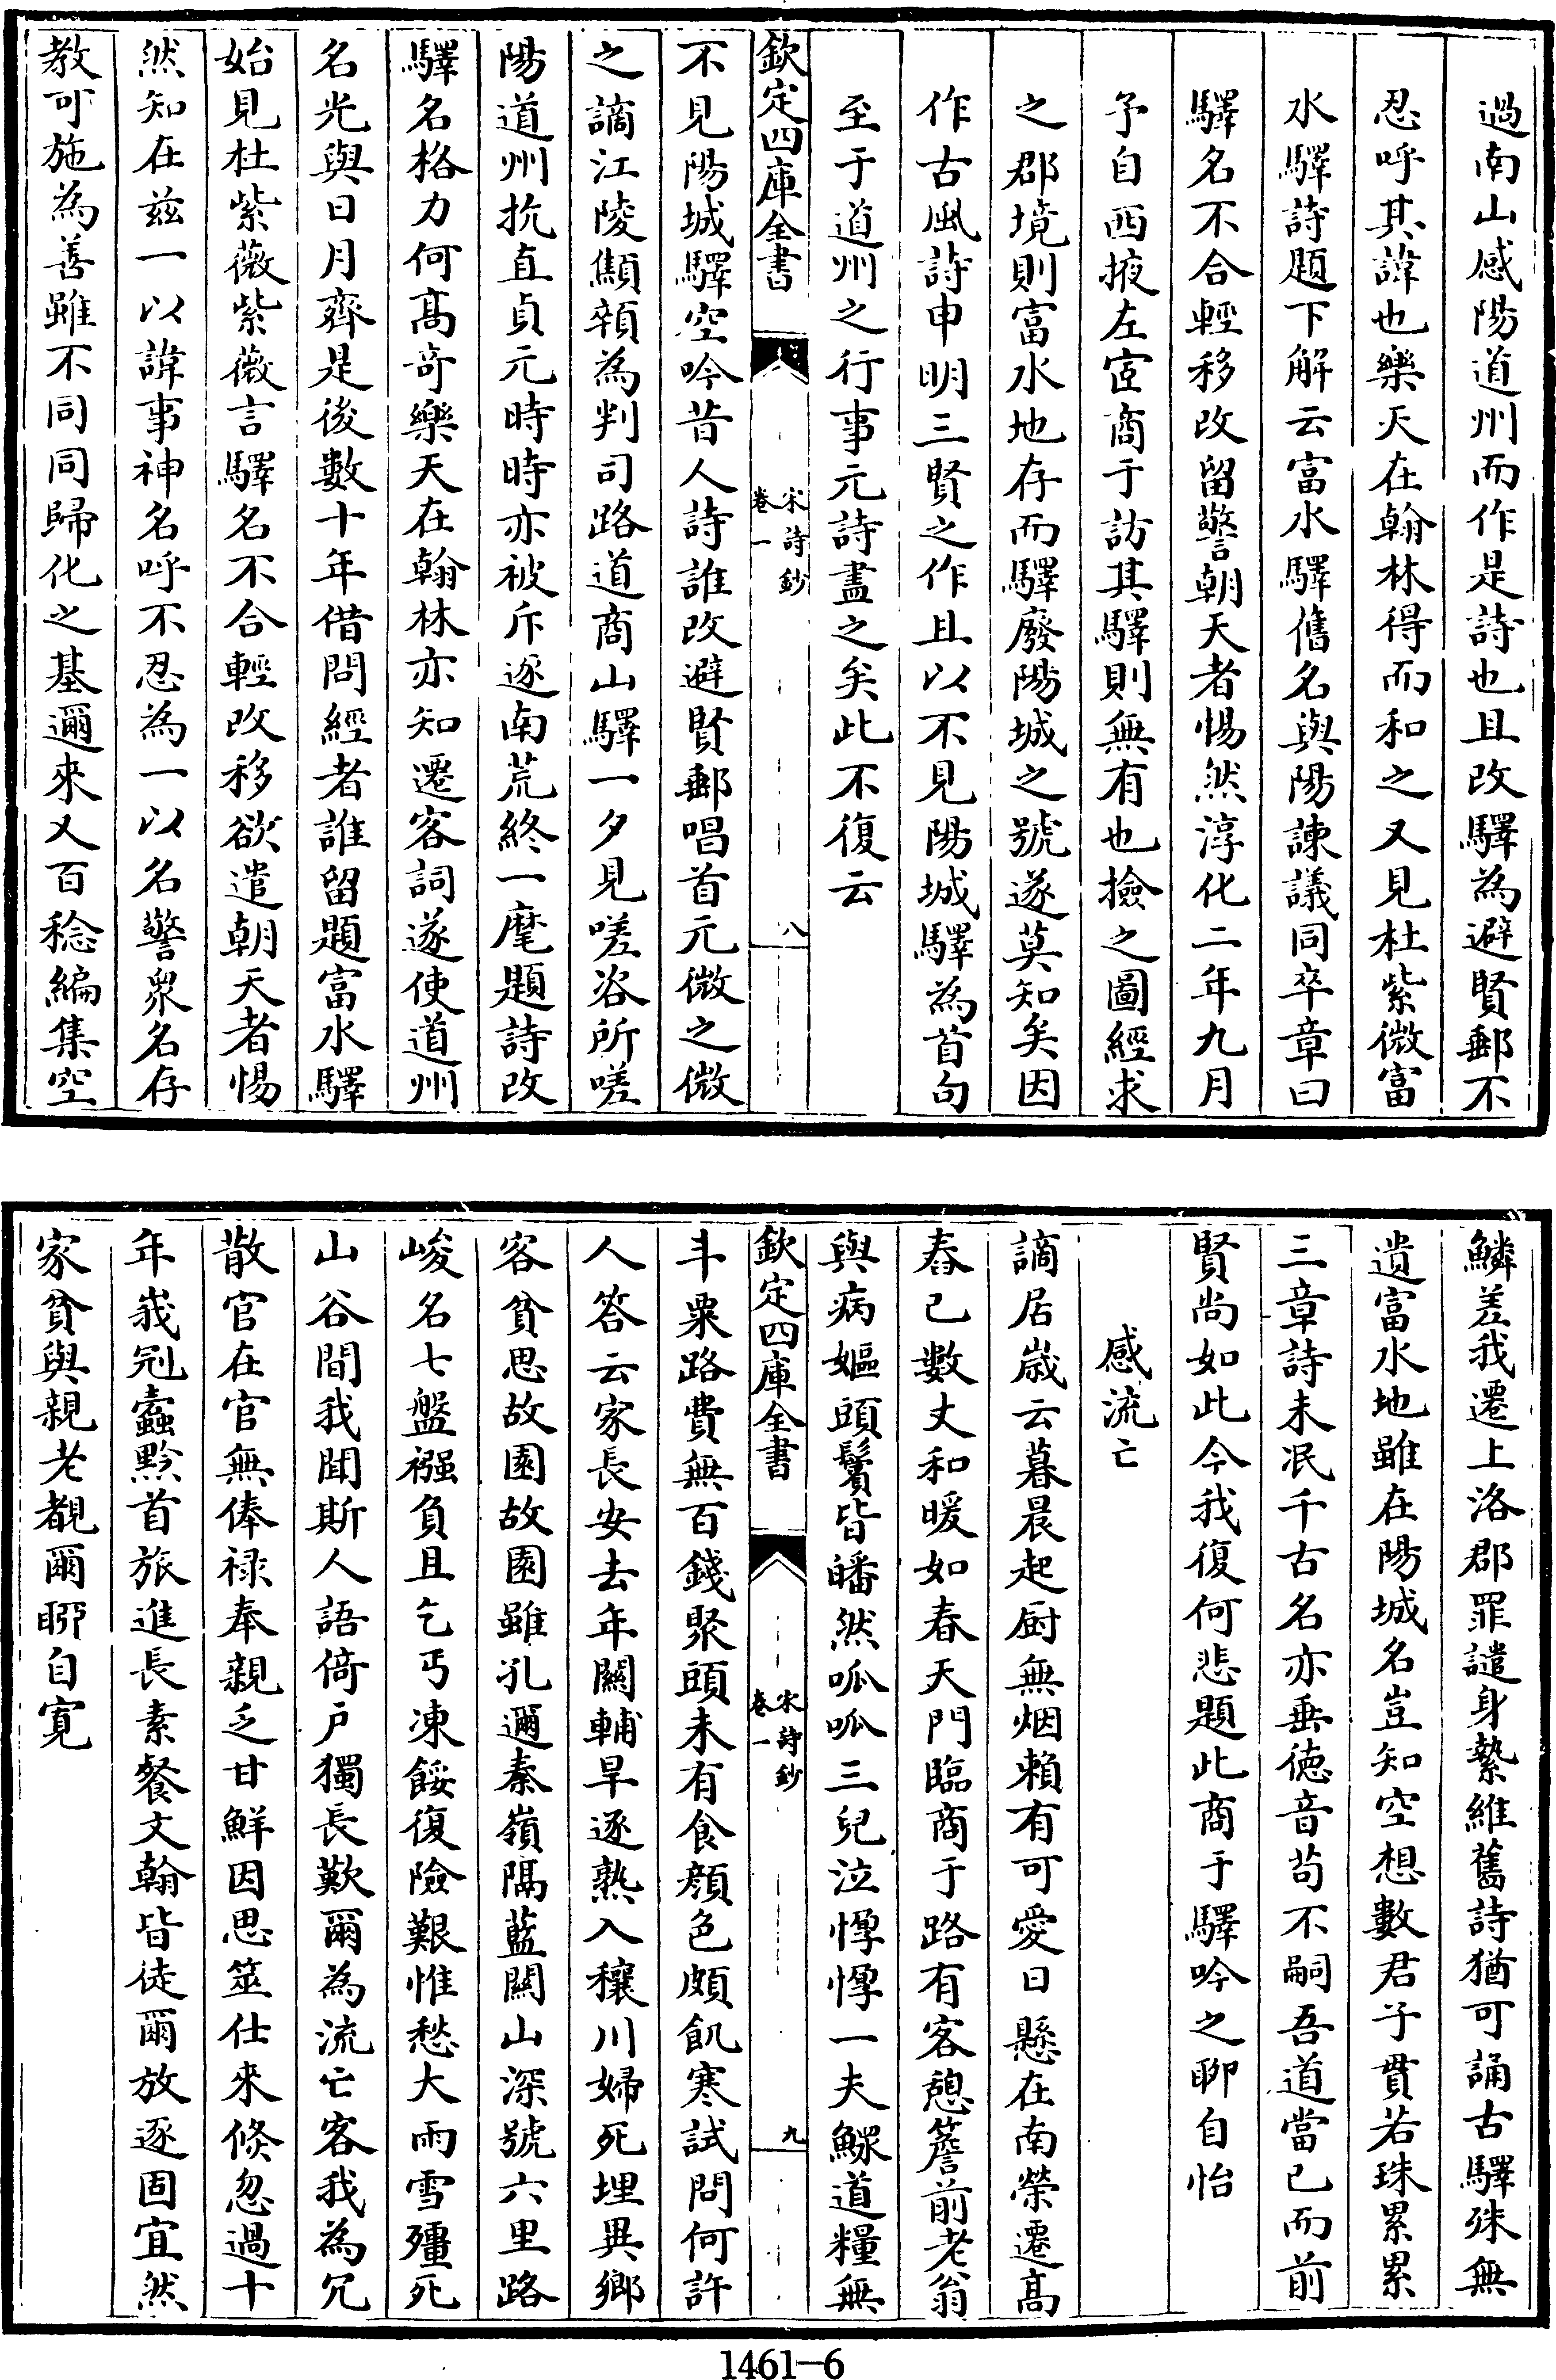 過南山感陽道州而作是詩也且改驛為避賢郵不
忍呼其諱也樂天在翰林得而和之又見杜紫微富
水驛詩題下解云富水驛舊名與陽諫議同卒章曰
驛名不合輕移改留警朝天者惕然淳化二年九月
予自西掖左宦商于訪其驛則無有也撿之圖經求
之郡境則富水地存而驛廢陽城之號遂莫知矣因
作古風詩申明三賢之作且以不見陽城驛為首句
至于道州之行事元詩盡之矣此不復云
欽定四庫全書
宋詩鈔
卷一
八
不見陽城驛空吟昔人詩誰改避賢郵唱首元微之微
之謫江陵顦顇為判司路道商山驛一夕見嗟咨所嗟
陽道州抗直貞元時時亦被斥逐南荒終一麾題詩改
驛名格力何髙竒樂天在翰林亦知遷客詞遂使道州
名光與日月齊是後數十年借問經者誰留題富水驛
始見杜紫薇紫薇言驛名不合輕改移欲遣朝天者惕
然知在兹一以諱事神名呼不忍為一以名警衆名存
教可施為善雖不同同歸化之基邇來又百稔編集空
鱗差我遷上洛郡罪譴身縶維舊詩猶可誦古驛殊無
遺富水地雖在陽城名豈知空想數君子貫若珠累累
三章詩未泯千古名亦垂徳音苟不嗣吾道當已而前
賢尚如此今我復何悲題此商于驛吟之聊自怡
感流亡
謫居歳云暮晨起厨無烟賴有可愛日懸在南榮遷髙
舂已數丈和暖如春天門臨商于路有客憩簷前老翁
與病嫗頭鬢皆皤然呱呱三兒泣惸惸一夫鰥道糧無
欽定四庫全書
宋詩鈔
卷一
九
斗粟路費無百錢聚頭未有食顔色頗飢寒試問何許
人答云家長安去年關輔旱逐熟入穰川婦死埋異鄉
客貧思故園故園雖孔邇秦嶺隔藍關山深號六里路
峻名七盤襁負且乞丐凍餒復險艱惟愁大雨雪殭死
山谷間我聞斯人語倚戶獨長歎爾為流亡客我為冗
散官在官無俸禄奉親乏甘鮮因思筮仕來倐忽過十
年峩冠蠧黔首旅進長素餐文翰皆徒爾放逐固宜然
家貧與親老覩爾聊自寛
1461—6